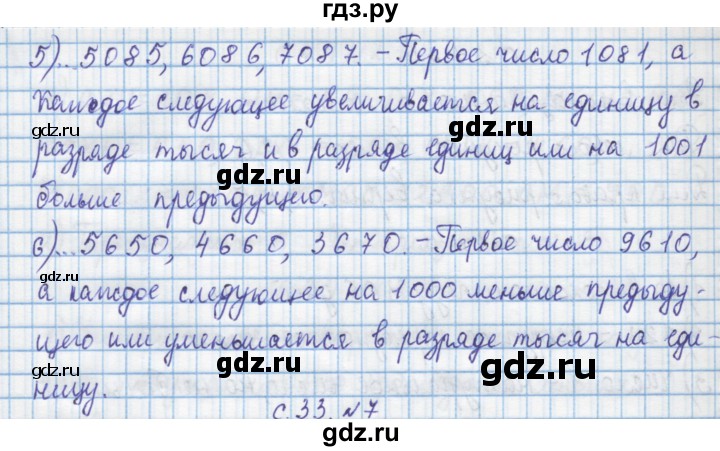 гдз.ру
5)...5085, 6086, 7087. - Первое число 1081, а
каждое следующее увеличивается на единицу в
разряде тысяч и в разряде единиц или на 1001
больше предыдущего.
6)...5650, 4660, 3670. - Первое число 9610,
а каждое следующее на 1000 меньше предыду-
щего или уменьшается в разряде тысяч на еди-
ницу.
с. 33. №7
gdz.ru
gdz.ru
gdz.ru
gdz.ru
gdz.ru
gdz.ru
gdz.ru
gdz.ru
gdz.ru
gdz.ru
gdz.ru